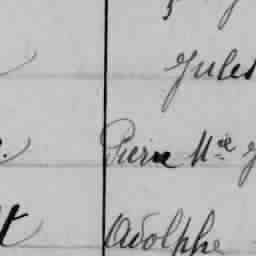 Jules
Pierre Mie J
Adolphe